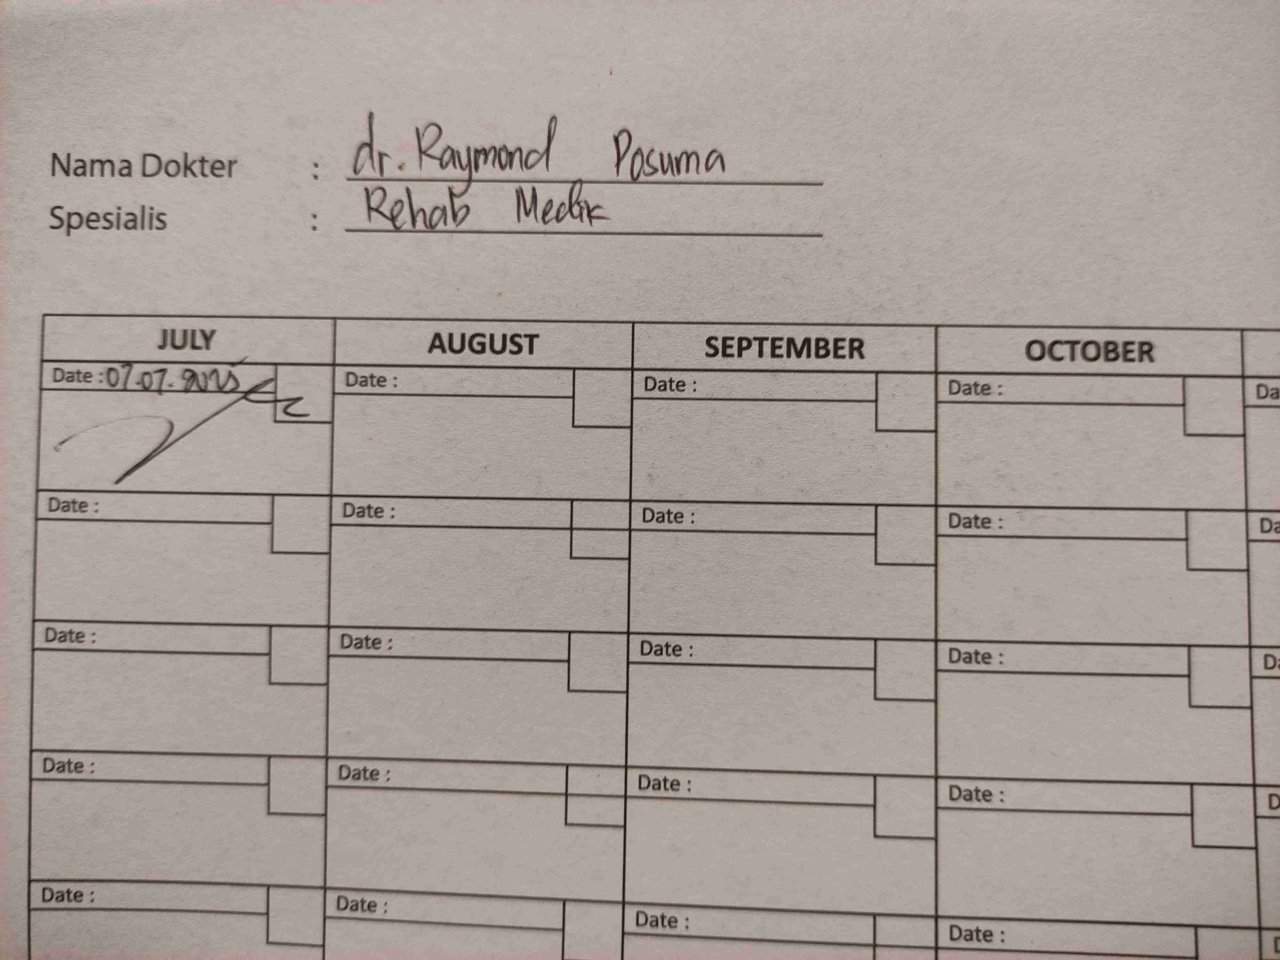 Nama Dokter : dr. Raymond Posuma
Spesialis : Rehab Medik
JULY AUGUST SEPTEMBER OCTOBER
Date : 07.07.2025 Date : Date : Date : Da
Date : Date : Date : Date : Da
Date : Date : Date : Date : D
Date : Date : Date : Date : D
Date : Date : Date : Date : D